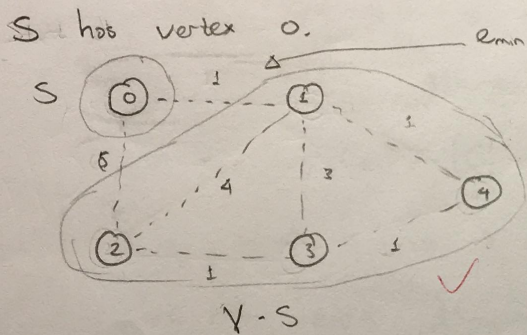 S has vertex 0.
emin
S 0 1 1
1
5 4 3 4
2 1 3 1
V - S